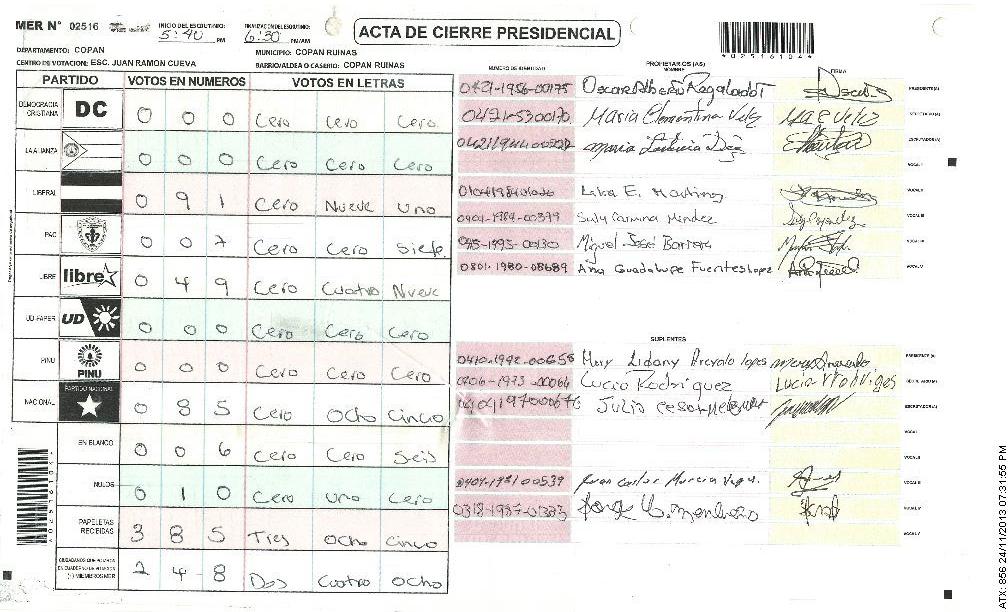 MER N° 02516
INICIO DEL ESCRUTINIO: 5:40 PM
FINALIZACION DEL ESCRUTINIO: 6:30 PM/AM
ACTA DE CIERRE PRESIDENCIAL
DEPARTAMENTO: COPAN
MUNICIPIO: COPAN RUINAS
CENTRO DE VOTACION: ESC. JUAN RAMON CUEVA
BARRIO/ALDEA O CASERIO: COPAN RUINAS
PARTIDO VOTOS EN NUMEROS VOTOS EN LETRAS
DEMOCRACIA CRISTIANA DC 0 0 0 Cero Cero Cero
LA ALIANZA 0 0 0 Cero Cero Cero
LIBERAL 0 9 1 Cero Nueve Uno
PAC 0 0 7 Cero Cero Siete
LIBRE libre 0 4 9 Cero Cuatro Nueve
UD-FAPER UD 0 0 0 Cero Cero Cero
PINU PINU 0 0 0 Cero Cero Cero
NACIONAL PARTIDO NACIONAL 0 8 5 Cero Ocho Cinco
EN BLANCO 0 0 6 Cero Cero Seis
NULOS 0 1 0 Cero Uno Cero
PAPELETAS RECIBIDAS 3 8 5 Tres Ocho Cinco
CIUDADANOS QUE VOTARON EN CUADERNO DE VOTACION (+) MIEMBROS MER 2 4 8 Dos Cuatro Ocho
NUMERO DE IDENTIDAD PROPIETARIOS (AS) NOMBRE FIRMA
0421-1956-00175 Oscar Alberto Regalado T PRESIDENTE(A)
Maria Clementina Velz SECRETARIO (A)
Maria ESCRUTADOR (A)
VOCAL I
E. Martinez VOCAL II
0401-1984-00399 Suly Carmina Mendez VOCAL III
Miguel José Barrera VOCAL IV
0801-1980-08689 Ana Guadalupe Fuentes Lopez VOCAL V
SUPLENTES
0410-1992-00658 Lidany Arevalo Lopes PRESIDENTE (A)
0406-1973-00064 Lucia Rodriguez Lucia SECRETARIO (A)
Julio Cesar ESCRUTADOR (A)
VOCAL I
Juan Carlos Murcia VOCAL II
0318-1987-01383 Jorge VOCAL IV
VOCAL V
4025161044
ATX: 856 24/11/2013 07:31:55 PM